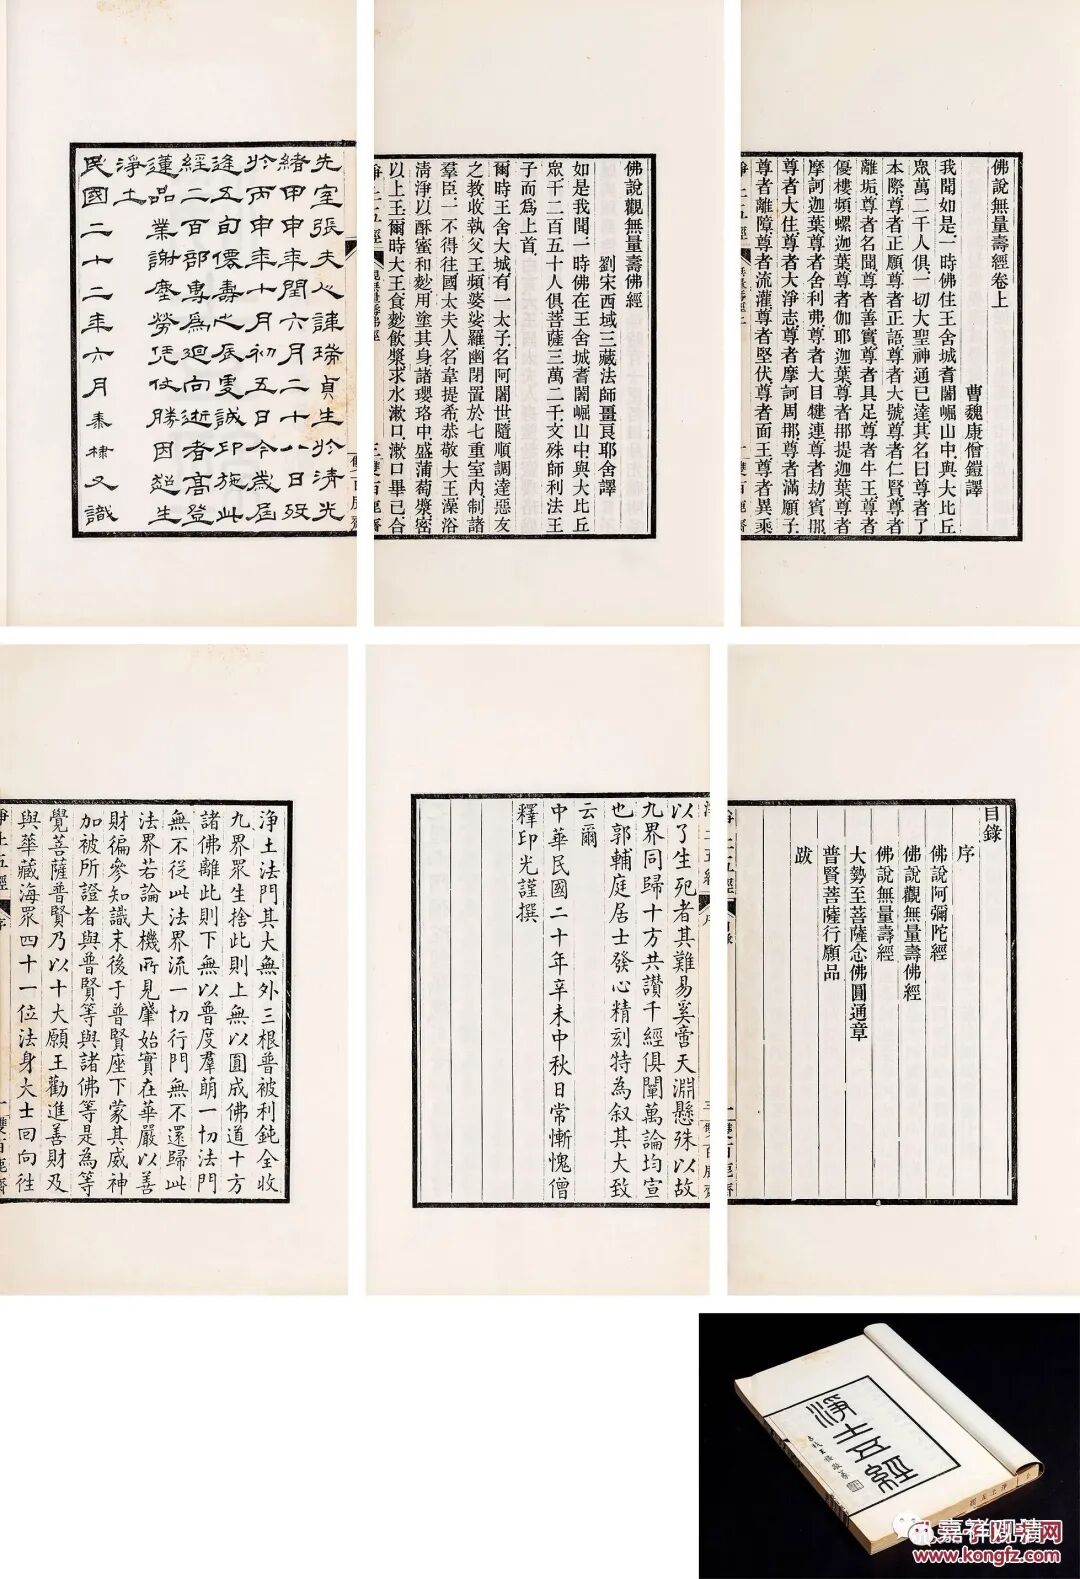 佛說無量壽經卷上
曹魏康僧鎧譯
我聞如是一時佛住王舍城耆闍崛山中與大比丘
眾萬二千人俱一切大聖神通已達其名曰尊者了
本際尊者正願尊者正語尊者大號尊者仁賢尊者
離垢尊者名聞尊者善實尊者具足尊者牛王尊者
優樓頻螺迦葉尊者伽耶迦葉尊者那提迦葉尊者
摩訶迦葉尊者舍利弗尊者大目犍連尊者劫賓那
尊者大住尊者大淨志尊者摩訶周那尊者滿願子
尊者離障尊者流灌尊者堅伏尊者面王尊者異乘
佛說觀無量壽佛經
劉宋西域三藏法師畺良耶舍譯
如是我聞一時佛在王舍城耆闍崛山中與大比丘
眾千二百五十人俱菩薩三萬二千文殊師利法王
子而為上首
爾時王舍大城有一太子名阿闍世隨順調達惡友
之教收執父王頻婆娑羅幽閉置於七重室內制諸
羣臣一不得往國太夫人名韋提希恭敬大王澡浴
清淨以酥蜜和麨用塗其身諸瓔珞中盛蒲萄漿密
以上王爾時大王食麨飲漿求水漱口漱口畢已合
淨土五經
雙百鹿齋
先室張夫人諱瑞貞生於清光
緒甲申年閏六月二十八日歿
於丙申年十月初五日今歲屆
逢五旬僊壽之辰虔誠印施此
經二百部專為迴向逝者高登
蓮品業謝塵勞凭仗勝因超生
淨土
民國二十二年六月秦棣又識
目錄
序
佛說阿彌陀經
佛說觀無量壽佛經
佛說無量壽經
大勢至菩薩念佛圓通章
普賢菩薩行願品
跋
以了生死者其難易奚啻天淵懸殊以故
九界同歸十方共讚千經俱闡萬論均宣
也郭輔庭居士發心精刻特為叙其大致
云爾
中華民國二十年辛未中秋日常慚愧僧
釋印光謹撰
淨土法門其大無外三根普被利鈍全收
九界眾生捨此則上無以圓成佛道十方
諸佛離此則下無以普度羣萌一切法門
無不從此法界流一切行門無不還歸此
法界若論大機所見肇始實在華嚴以善
財徧參知識末後于普賢座下蒙其威神
加被所證者與普賢等與諸佛等是為等
覺菩薩普賢乃以十大願王勸進善財及
與華藏海眾四十一位法身大士回向往
淨土五經
序
一
雙百鹿齋
淨土五經
www.kongfz.com